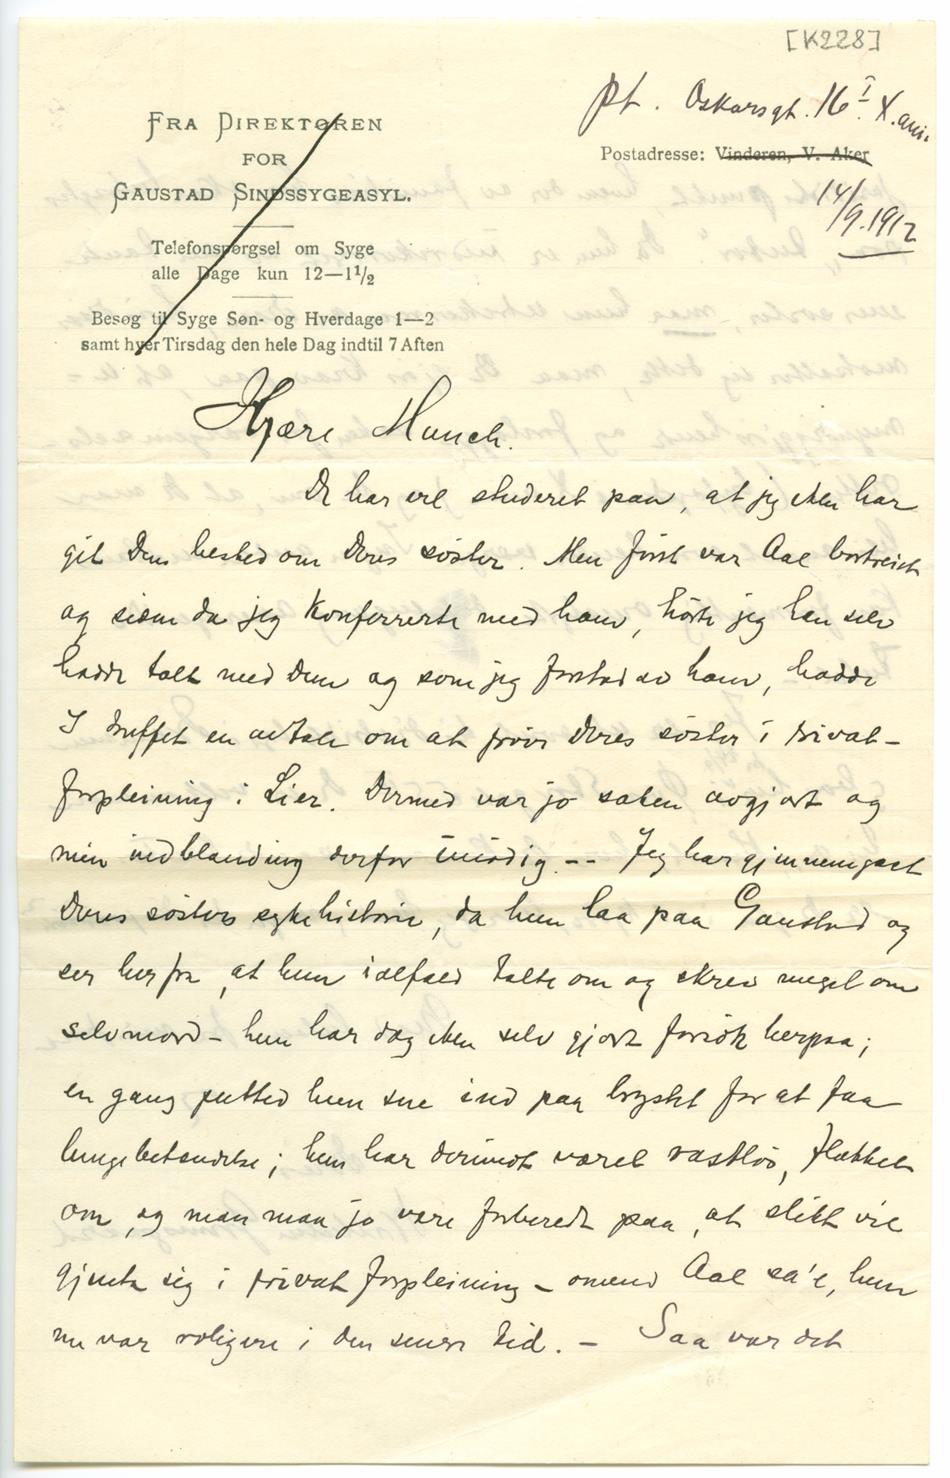 [K228]
pt. Oskarsgt. 16 I X. ania.
FRA DIREKTØREN
FOR
GAUSTAD SINDSSYGEASYL.
Postadresse: Vinderen, V. Aker
14/9.1912
Telefonspørgsel om Syge
alle Dage kun 12—1½
Besøg til Syge Søn- og Hverdage 1—2
samt hver Tirsdag den hele Dag indtil 7 Aften
Kjære Munch.
De har vel studeret paa, at jeg ikke har
git Dem besked om Deres søster. Men først var Aal bortreist
og siden da jeg konfererte med ham, hørte jeg han selv
hadde talt med Dem og som jeg forstod av ham, hadde
I truffet en avtale om at prøve Deres søster i privat-
forpleining i Lier. Dermed var jo saken avgjort og
min indblanding derfor unødig. -- Jeg har gjennemgaat
Deres søsters sykehistorie, da hun laa paa Gaustad og
ser herfra, at hun ialfald talte om og skrev meget om
selvmord - hun har dog ikke selv gjort forsøk herpaa;
en gang putted hun sne ind paa brystet for at faa
lungebetændelse; hun har derimot været rastløs, flakket
om, og man maa jo være forberedt paa, at slikt vil
gjenta sig i privat forpleining - omend Aal sa'e, hun
nu var roligere i den senere tid. - Saa var det